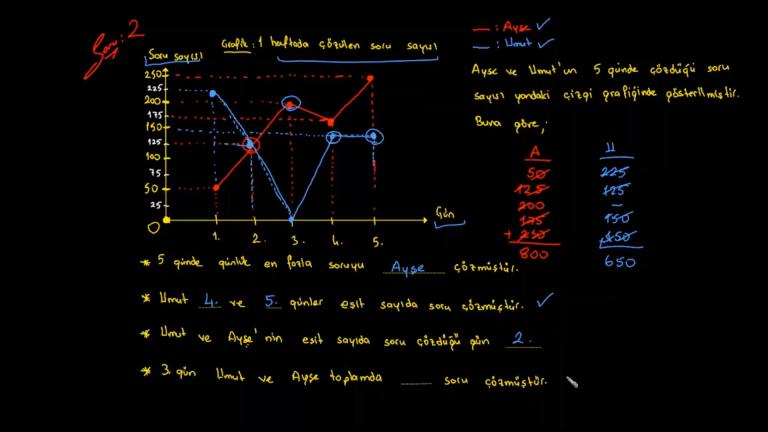 Soru: 2
1
Grafik: 1 haftada çözülen soru sayısı
Soru sayısı
250
225
200
175
150
125
100
75
50
25
0
1. 2. 3. 4. 5.
Gün
: Ayşe ✓
: Umut ✓
Ayşe ve Umut'un 5 günde çözdüğü soru
sayısı yandaki çizgi grafiğinde gösterilmiştir.
Buna göre;
A U
50 225
125 125
200 –
175 150
+ 250 + 150
800 650
* 5 günde günlük en fazla soruyu Ayşe çözmüştür.
* Umut 4. ve 5. günler eşit sayıda soru çözmüştür. ✓
* Umut ve Ayşe'nin eşit sayıda soru çözdüğü gün 2.
* 3. gün Umut ve Ayşe toplamda ____ soru çözmüştür.